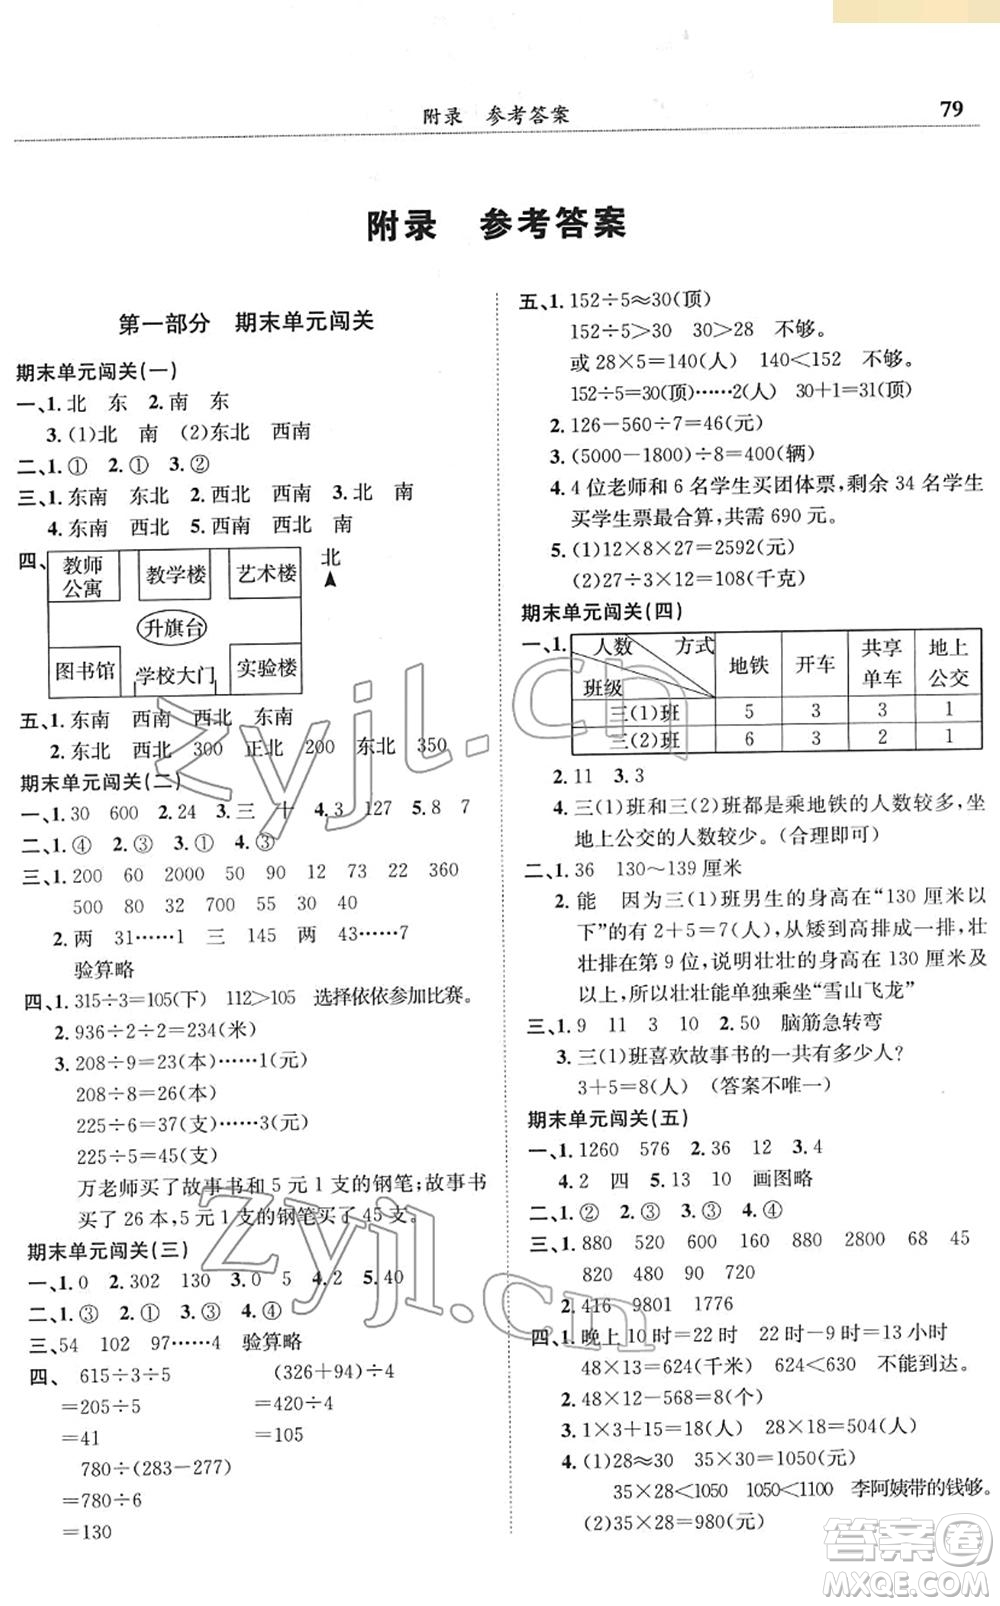 附录 参考答案 79
附录 参考答案
第一部分 期末单元闯关
期末单元闯关(一)
一、1.北 东 2.南 东
3.(1)北 南 (2)东北 西南
二、1.① 2.① 3.②
三、1.东南 东北 2.西北 西南 3.北 南
4.东南 西北 5.西南 西北 南
四、
教师公寓 教学楼 艺术楼 北
升旗台
图书馆 学校大门 实验楼
五、1.东南 西南 西北 东南
2.东北 西北 300 正北 200 东北 350
期末单元闯关(二)
一、1.30 600 2.24 3.三 十 4.3 127 5.8 7
二、1.④ 2.③ 3.① 4.③
三、1.200 60 2000 50 19 22 360
500 80 32 700 20 30 40
2.两 31……1 三 145 两 43……7
验算略
四、1.315÷3=105(下) 112>105 选择依依参加比赛。
2.936÷2÷2=234(米)
3.208÷9=23(本)……1(元)
208÷8=26(本)
225÷6=37(支)……3(元)
225÷5=45(支)
万老师买了故事书和 5 元 1 支的钢笔;故事书
买了 26 本,5 元 1 支的钢笔买了 45 支。
期末单元闯关(三)
一、1.0 2.302 130 3.0 5 4.2 5.40
二、1.③ 2.① 3.③ 4.④
三、54 102 97……4 验算略
四、 615÷3÷5 (326+94)÷4
=205÷5 =420÷4
=41 =105
780÷(283-277)
=780÷6
=130
五、1.152÷5≈30(顶)
152÷5>30 30>28 不够。
或 28×5=140(人) 140<152 不够。
152÷5=30(顶)……2(人) 30+1=31(顶)
2.126-560÷7=46(元)
3.(5000-1800)÷8=400(辆)
4.4 位老师和 6 名学生买团体票,剩余 34 名学生
买学生票最合算,共需 690 元。
5.(1)12×8×27=2592(元)
(2)27÷3×12=108(千克)
期末单元闯关(四)
一、1.
人数 方式 班级 地铁 开车 共享单车 地上公交
三(1)班 5 3 3 1
三(2)班 6 3 2 1
2.11 3.3
4.三(1)班和三(2)班都是乘地铁的人数较多,坐
地上公交的人数较少。(合理即可)
二、1.36 130～139 厘米
2.能 因为三(1)班男生的身高在“130 厘米以
下”的有 2+5=7(人),从矮到高排成一排,壮
壮排在第 9 位,说明壮壮的身高在 130 厘米及
以上,所以壮壮能单独乘坐“雪山飞龙”
三、1.9 11 3 10 2.50 脑筋急转弯
3.三(1)班喜欢故事书的一共有多少人?
3+5=8(人) (答案不唯一)
期末单元闯关(五)
一、1.1260 576 2.36 12 3.4
4.2 四 5.13 10 画图略
二、1.② 2.③ 3.③ 4.④
三、1.880 520 600 88 2800 68 45
820 480 880 720
2.416 9801 1776
四、1.晚上 10 时=22 时 22时-9时=13 小时
48×13=624(千米) 624<630 不能到达。
2.48×12-568=8(个)
3.1×3+15=18(人) 28×18=504(人)
4.(1)28≈30 35×30=1050(元)
35×28<1050 1050<1100 李阿姨带的钱够。
(2)35×28=980(元)
zyjl.cn
zyjl.cn
答案圈
MXQE.COM